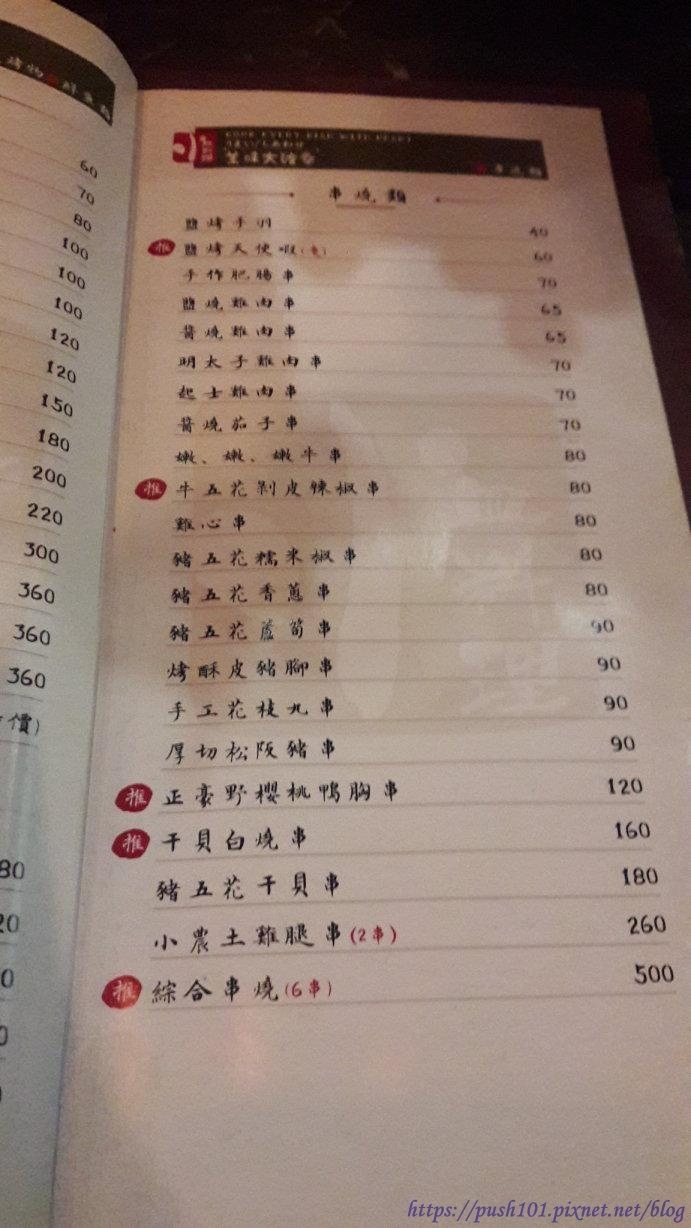 60
70
80
100
100
100
120
120
150
180
200
220
300
360
360
360
價)
80
20
0
0
COOK EVERY DISH WITH HEART
美味大滿
串燒類
鹽烤手羽 40
推 鹽烤天使蝦(隻) 60
手作肥腸串 70
鹽燒雞肉串 65
醬燒雞肉串 65
明太子雞肉串 70
起士雞肉串 70
醬燒茄子串 70
嫩、嫩、嫩牛串 80
推 牛五花剝皮辣椒串 80
雞心串 80
豬五花糯米椒串 80
豬五花香蔥串 80
豬五花蘆筍串 90
烤酥皮豬腳串 90
手工花枝丸串 90
厚切松阪豬串 90
推 正豪野櫻桃鴨胸串 120
推 干貝白燒串 160
豬五花干貝串 180
小農土雞腿串(2串) 260
推 綜合串燒(6串) 500
https://push101.pixnet.net/blog